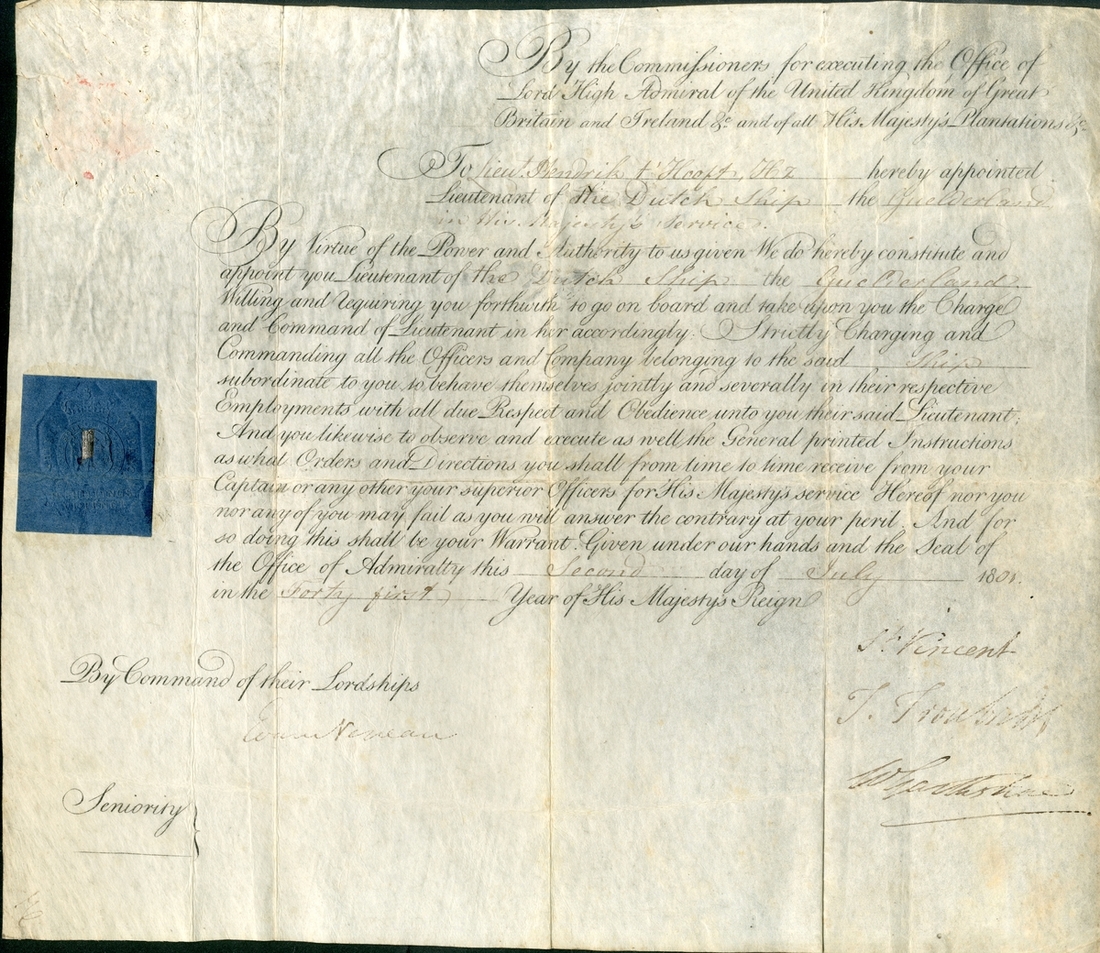 By the Commissioners for executing the Office of
Lord High Admiral of the United Kingdom of Great
Britain and Ireland &c. and of all His Majesty's Plantations &c.
To Lieut. Hendrik t'Hooft, Hz hereby appointed
Lieutenant of the Dutch Ship the Guelderland
in His Majesty's Service.
By Virtue of the Power and Authority to us given We do hereby constitute and
appoint you Lieutenant of the Dutch Ship the Guelderland
Willing and requiring you forthwith to go on board and take upon you the Charge
and Command of Lieutenant in her accordingly. Strictly Charging and
Commanding all the Officers and Company belonging to the said Ship
subordinate to you to behave themselves jointly and severally in their respective
Employments with all due Respect and Obedience unto you their said Lieutenant;
And you likewise to observe and execute as well the General printed Instructions
as what Orders and Directions you shall from time to time receive from your
Captain or any other your superior Officers for His Majesty's service Hereof nor you
nor any of you may fail as you will answer the contrary at your peril. And for
so doing this shall be your Warrant. Given under our hands and the Seal of
the Office of Admiralty this Second day of July 1801.
in the Forty first Year of His Majesty's Reign
St. Vincent
By Command of their Lordships
T. Troubridge
Evan Nepean
Seniority